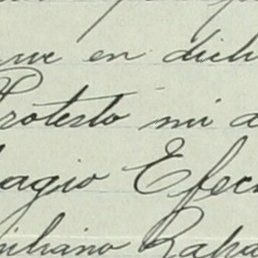 que en dich
Protesto mi a
agio Efec
iliano Zapa